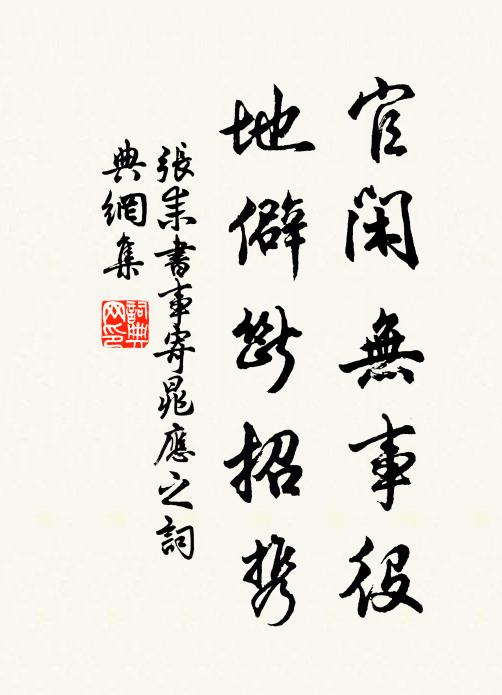 官閑無事役
地僻斷招携
張耒書事寄晁應之詞
典網集
詞典
网印